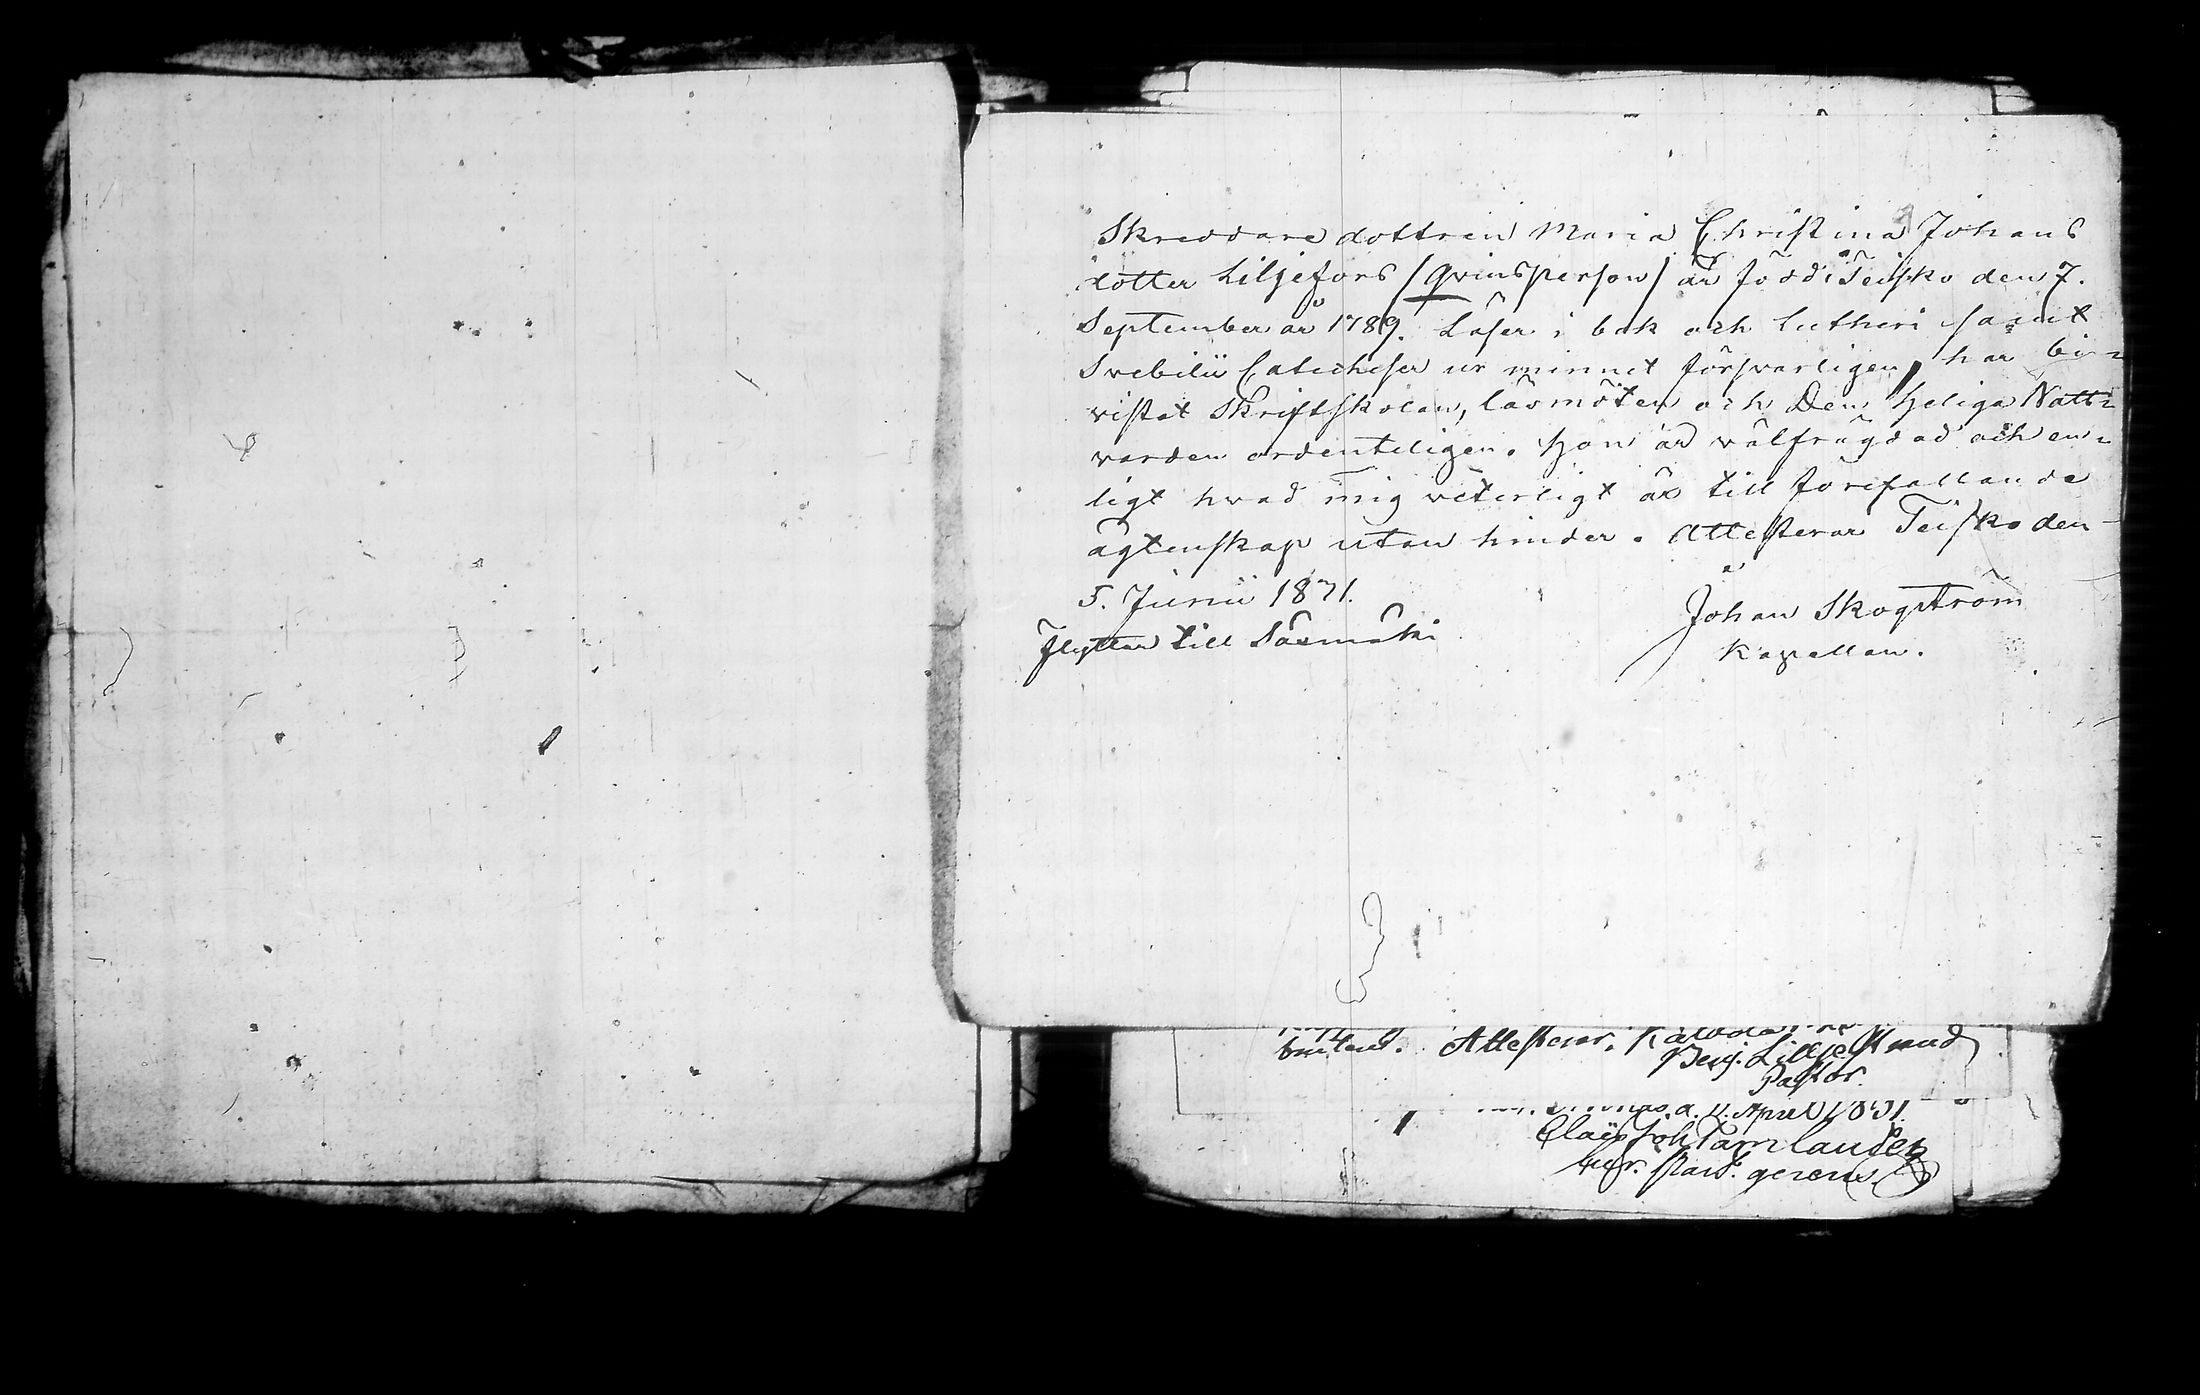 Skreddare dottren Maria Christina Johans
dotter Liljefors /qvinsperson/ är född i Teisko den 7.
September år 1789. Läser i bok och Lutheri samt
Svebilii Catecheser ur minnet försvarligen, har bi=
vistat Skriftskolan, läsmöten och Den Heliga Natt=
varden ordenteligen. Hon är välfrägdad och en=
ligt hvad mig veterligt är till förefallande
ägtenskap utan hinder. Attesterar Teisko den
5. Junii 1831.
Johan Skogström
Flyttar till Säämäki
Kapellan.
Attesterar.
Benj. Liljestrand
Pastor.
April 1831.
Claës Joh. Tamlander
gerens.